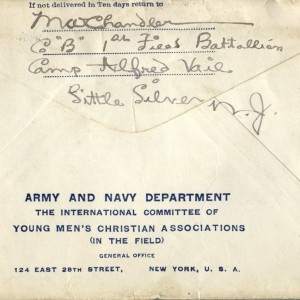 If not delivered in Ten days return to
Max Chandler
Co "B" 1st Field Battallion
Camp Alfred Vail
Little Silver N.J.
ARMY AND NAVY DEPARTMENT
THE INTERNATIONAL COMMITTEE OF
YOUNG MEN'S CHRISTIAN ASSOCIATIONS
(IN THE FIELD)
GENERAL OFFICE
124 EAST 28TH STREET, NEW YORK, U. S. A.